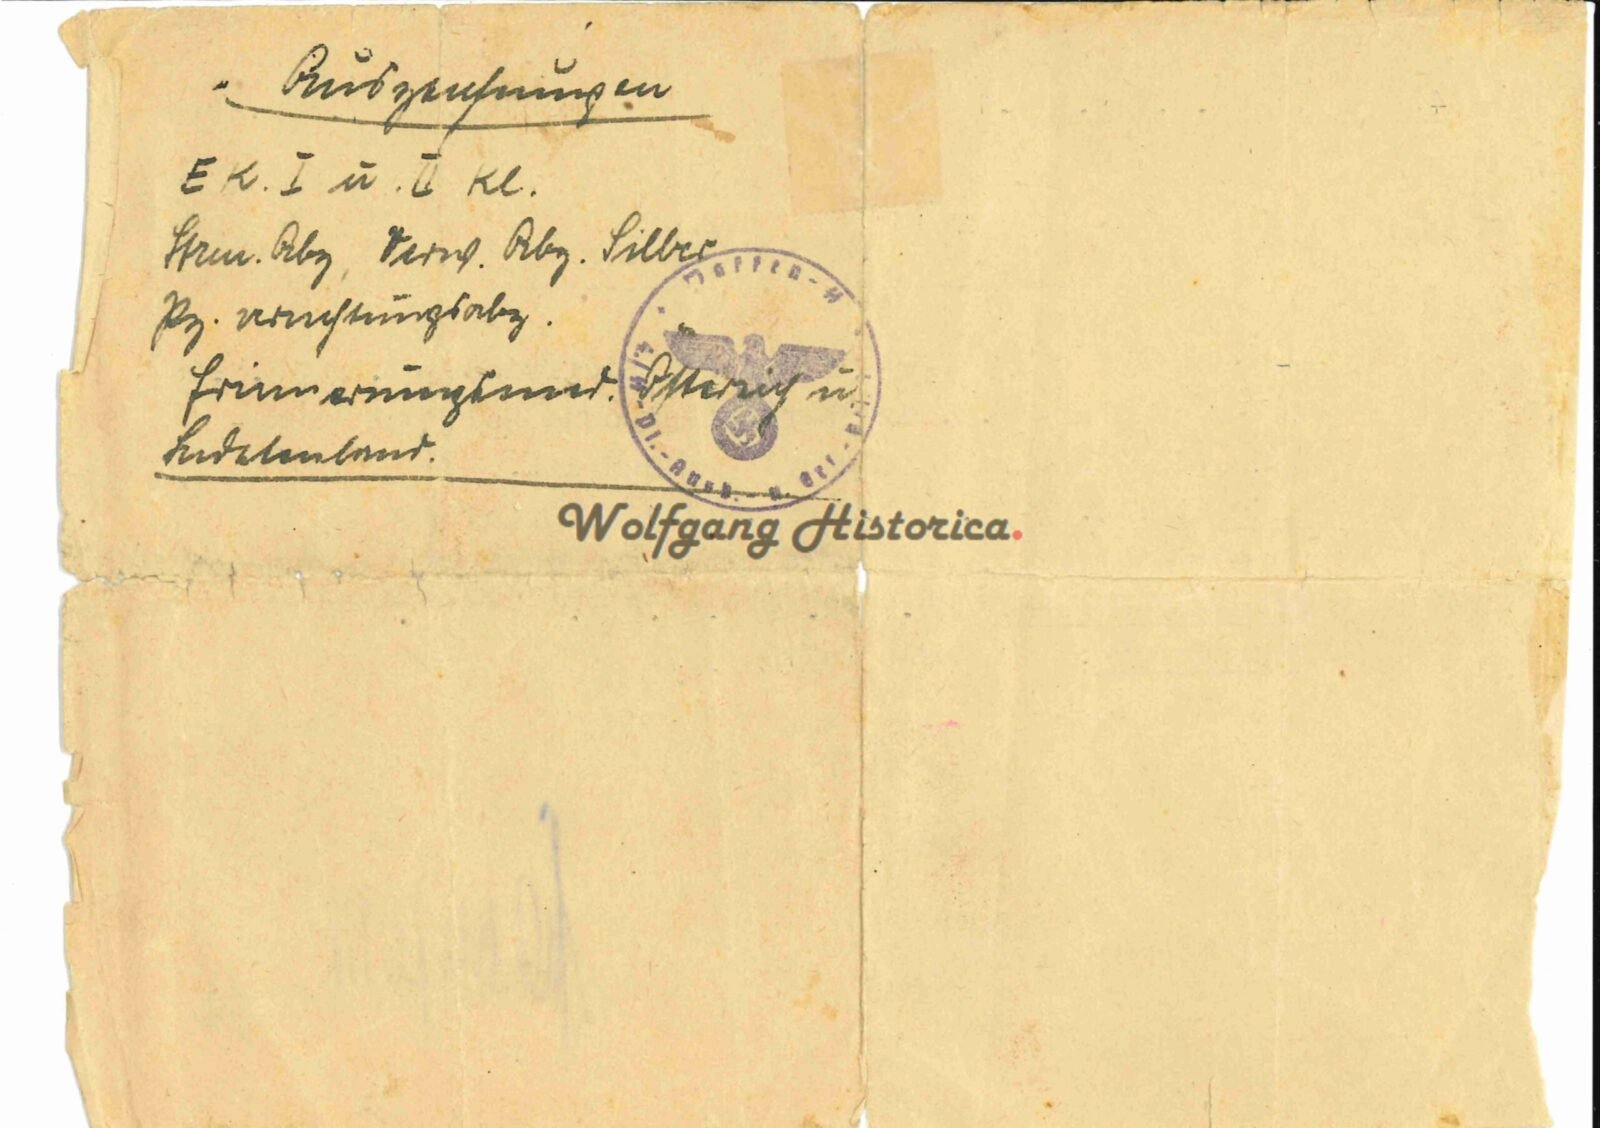 Auszeichnungen
E K. I u. II Kl.
Strm. Abz, Verw. Abz. Silber
Pz. vernichtungsabz.
Erinnerungsmed. Österreich u
Sudetenland.
Waffen-ᛋᛋ
Pi.-Ausb.- u.
Wolfgang Historica.